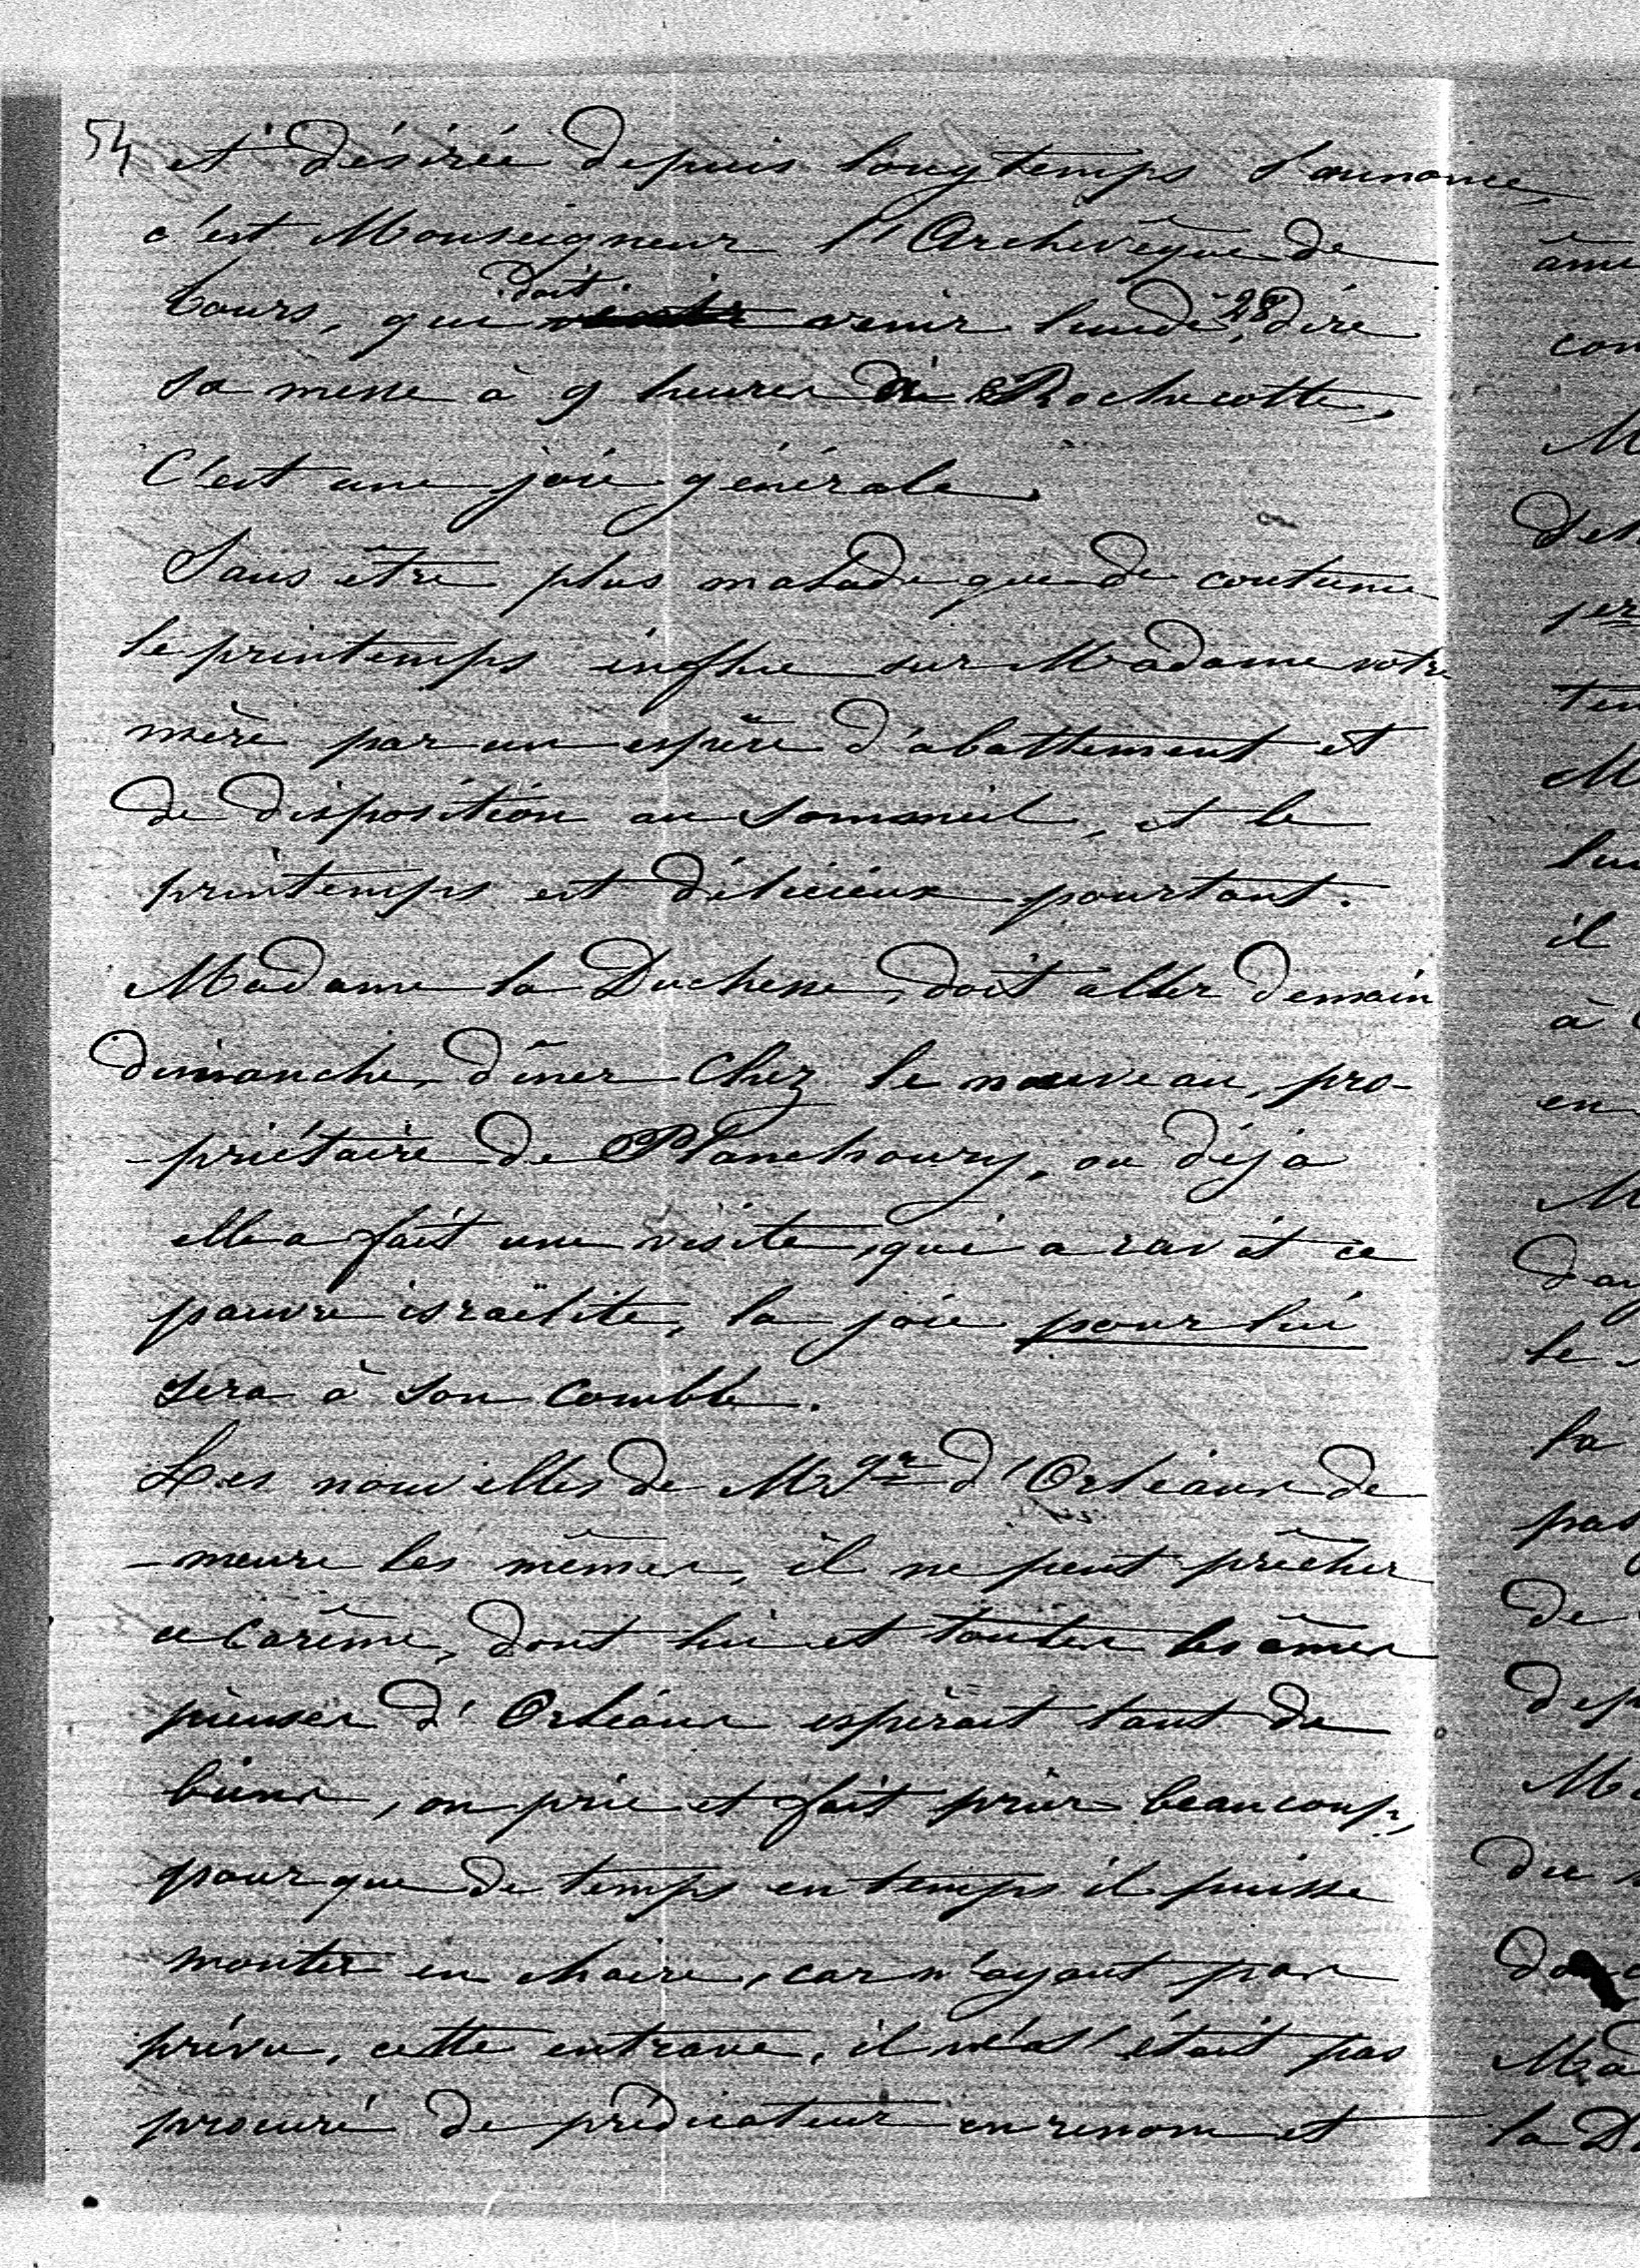 54 et désirée depuis longtemps s'annonce,
c'est Monseigneur l'Archevêque de
Tours, qui doit venir lundi 28, dire
sa messe à 9 heures à Rochecotte,
C'est une joie générale.
Sans être plus malade que de coutume
le printemps influe sur Madame votre
mère par un espèce d'abattement et
de disposition au sommeil, et le
printemps est délicieux pourtant.
Madame la Duchesse, doit aller demain
dimanche, dîner chez le nouveau, pro-
-priétaire de Planchoury, ou déjà
elle a fait une visite, qui a ravit ce
pauvre israëlite, la joie pour lui
sera à son comble.
Les nouvelles de Mgr d'Orléans de
-meure les mêmes, il ne peut prêcher
ce Carême, dont lui et toutes les âmes
pieuses d'Orléans espérait tant de
biens, on prie et fait prier beaucoup,
pour que de temps en temps il puisse
monter en chaire, car n'ayant pas
prévu, cette entrave, il s'était pas
procuré de prédicateur en renom et
âme
con
M
per
ten
M
il
à
en
M
le
la
pas
de
dep
du
la D